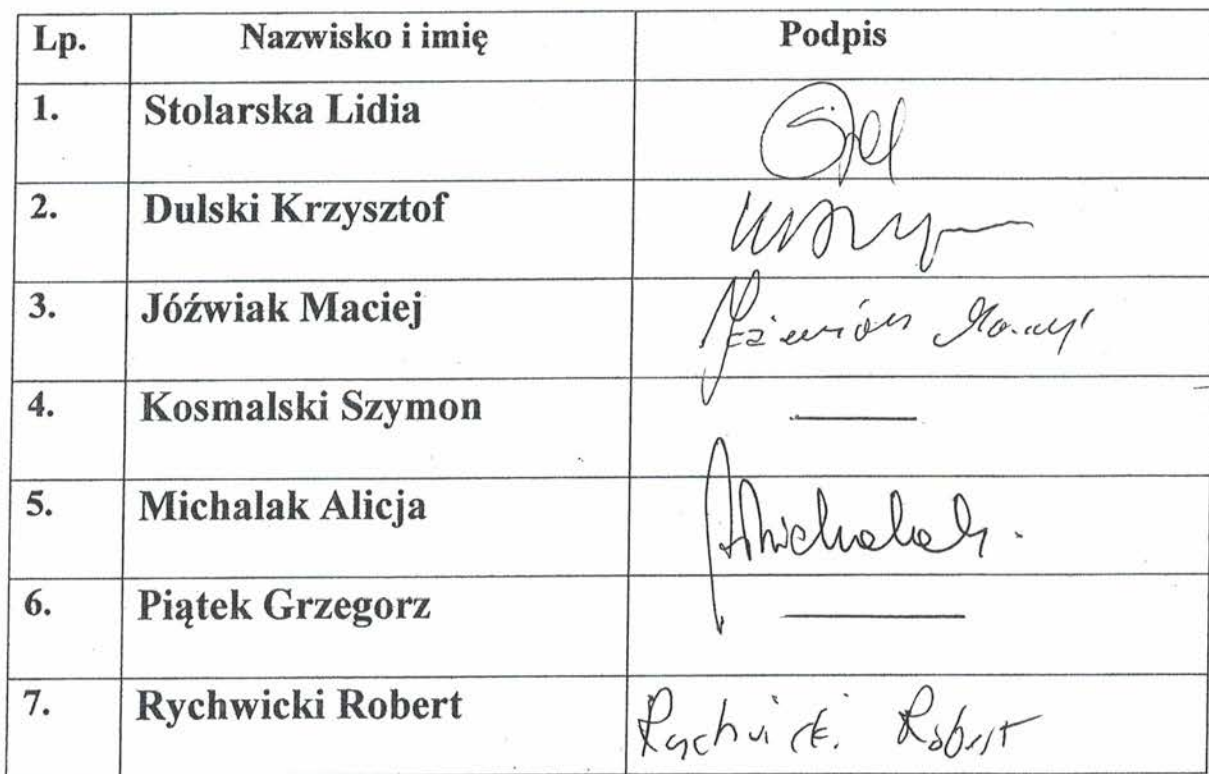 Lp. Nazwisko i imię Podpis
1. Stolarska Lidia
2. Dulski Krzysztof
3. Jóźwiak Maciej
4. Kosmalski Szymon
5. Michalak Alicja AMichalak.
6. Piątek Grzegorz
7. Rychwicki Robert Rychwicki Robert